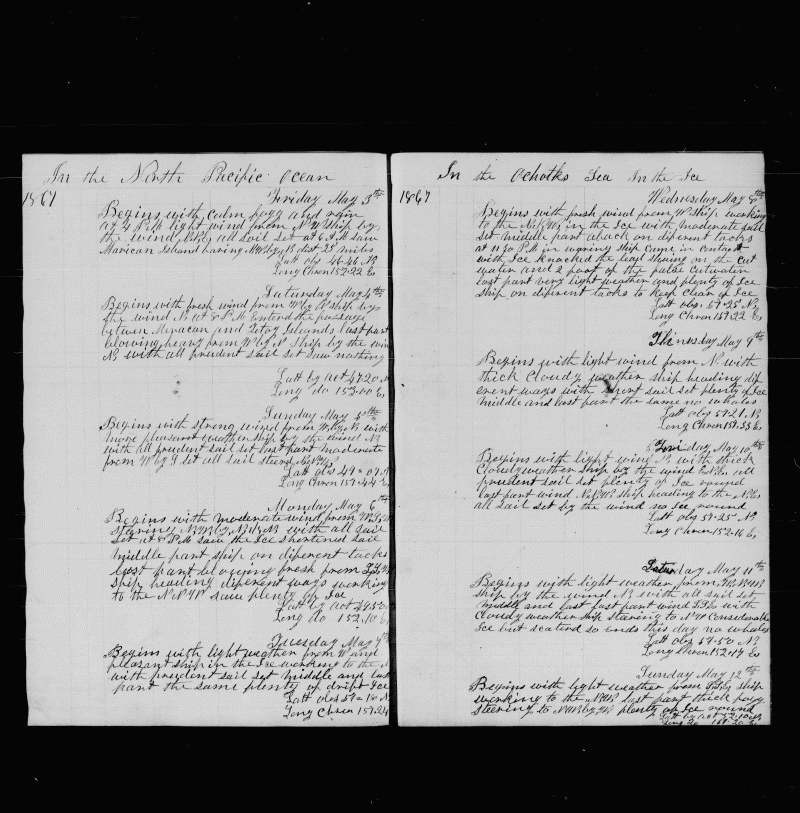 In the North Pacific Ocean
1867
Friday May 3th
Begins with calm fogg and rain
at 4 P.M light wind from N.W ship by
the wind all sail set at 6 A.M saw
Marican Island baring dist 25 miles
Latt obs 46-46 N
Long Chron 152-22 E
Saturday May 4th
Begins with fresh wind from W by N ship by
the wind N at 8 P.M Enterd the passage
betwen and Islands last part
blowing heavy from W by N ship by the wind
N with all prudent sail set saw nothing
Latt by act 47-20 N
Long do 153-00 E
Sunday May 5th
Begins with strong wind from with
pleasant weather ship by the wind N
with all prudent sail set last part moderate
from set all sail steerd
Latt obs 49-07 N
Long Chron 151-44 E
Monday May 6th
Begins with moderate wind from
Stearing with all sail
set at 8 P.M saw the Ice shortened sail
middle part ship on diferent tacks
last part blowing fresh from
ship heading diferent ways working
to the saw plenty of Ice
Latt by act 49-50
Long do 152-10 E
Tuesday May 7th
Begins with light weather from W and
pleasant ship in the Ice working to the N
with prudent sail set middle and last
part the same plenty of drift Ice
Latt obs 51-10 N
Long Chron 151-24
In the Ochotks Sea In the Ice
1867
Wednesday May 8th
Begins with fresh wind from W ship working
to the in the Ice with moderate sail
set middle part aback on diferent tacks
at 11 P.M in waring ship came in contact
with Ice knocked the on the cut
water and 2 foot of the false cutwater
last part very light weather and plenty of Ice
ship on diferent tacks to keep clear of Ice
Latt obs 51-25 N
Long Chron 151-22 E
Thirsday May 9th
Begins with light wind from N with
thick Cloudy weather ship heading dif
erent ways with short sail set plenty of Ice
middle and last part the same no whales
Latt obs 51-21 N
Long Chron 151-33 E
Friday May 10th
Begins with light wind N with thick
Cloudy weather ship by the wind all
prudent sail set plenty of Ice round
last part wind ship heading to the
all sail set by the wind no Ice round
Latt obs 51-25 N
Long Chron 152-16 E
Saturday May 11th
Begins with light weather from
ship by the wind N with all sail set
middle and last part wind with
Cloudy weather ship steering to N.W Considerable
Ice but scaterd so ends this day no whales
Latt obs 51-50 N
Long Chron 152-17 E
Sunday May 12th
Begins with light weather from ship
working to the last part thick fogg
steering to plenty of Ice round
Latt by act
Long do